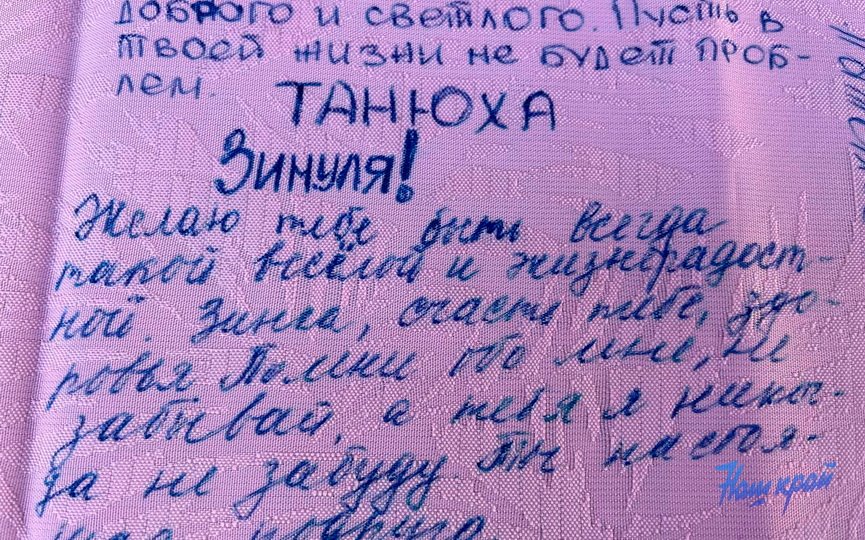 доброго и светлого. Пусть в
твоей жизни не будет проб-
лем.
ТАНЮХА
Зинуля!
Желаю тебе быть всегда
такой весёлой и жизнерадост-
ной. Зинка, счастья тебе, здо-
ровья Помни обо мне, не
забывай, а тебя я никог-
да не забуду. Ты настоя-
щая подруга.
Наш край